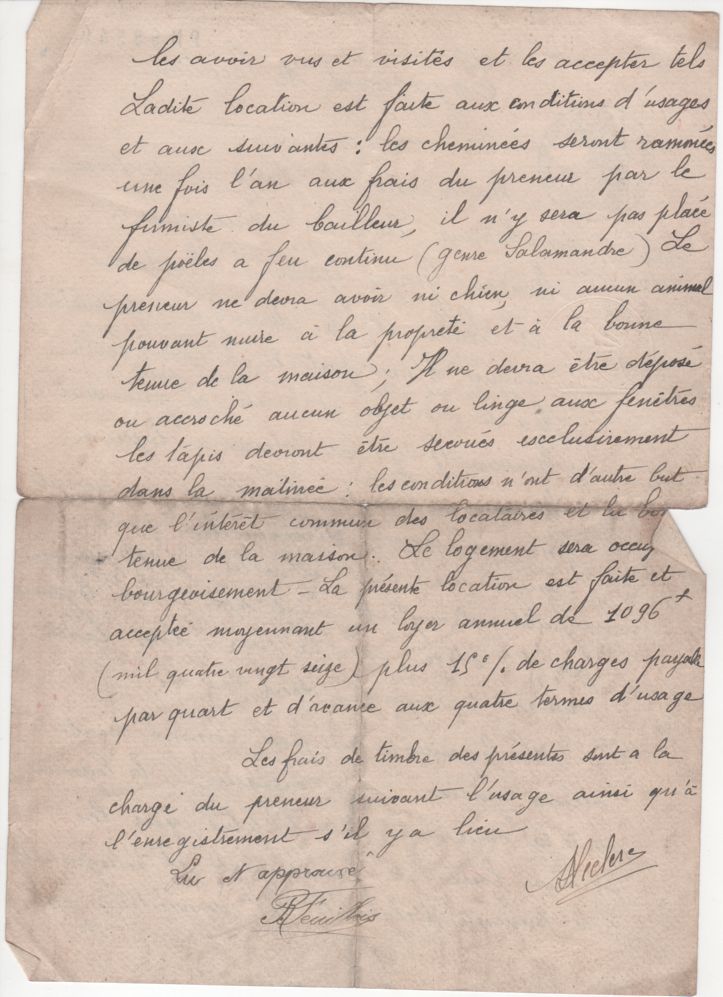 les avoir vus et visités et les accepter tels
Ladite location est faite aux conditions d'usages
et aux suivantes : les cheminées seront ramonées
une fois l'an aux frais du preneur par le
fumiste du bailleur, il n'y sera pas placé
de poëles a feu continu (genre Salamandre) Le
preneur ne devra avoir ni chien, ni aucun animal
pouvant nuire à la propreté et à la bonne
tenue de la maison ; Il ne devra être déposé
ou accroché aucun objet ou linge aux fenêtres
les tapis devront être secoués esclusirement
dans la matinée : les conditions n'ont d'autre but
que l'intérêt commun des locataires et la bo
tenue de la maison. Le logement sera occu
bourgeoisement - La présente location est faite et
acceptée moyennant un loyer annuel de 1096 +
(mil quatre vingt seize) plus 15 % de charges payable
par quart et d'avance aux quatre termes d'usage
Les frais de timbre des présentes sont a la
charge du preneur suivant l'usage ainsi qu'à
l'enregistrement s'il y a lieu
Lu et approuvé
Leclerc